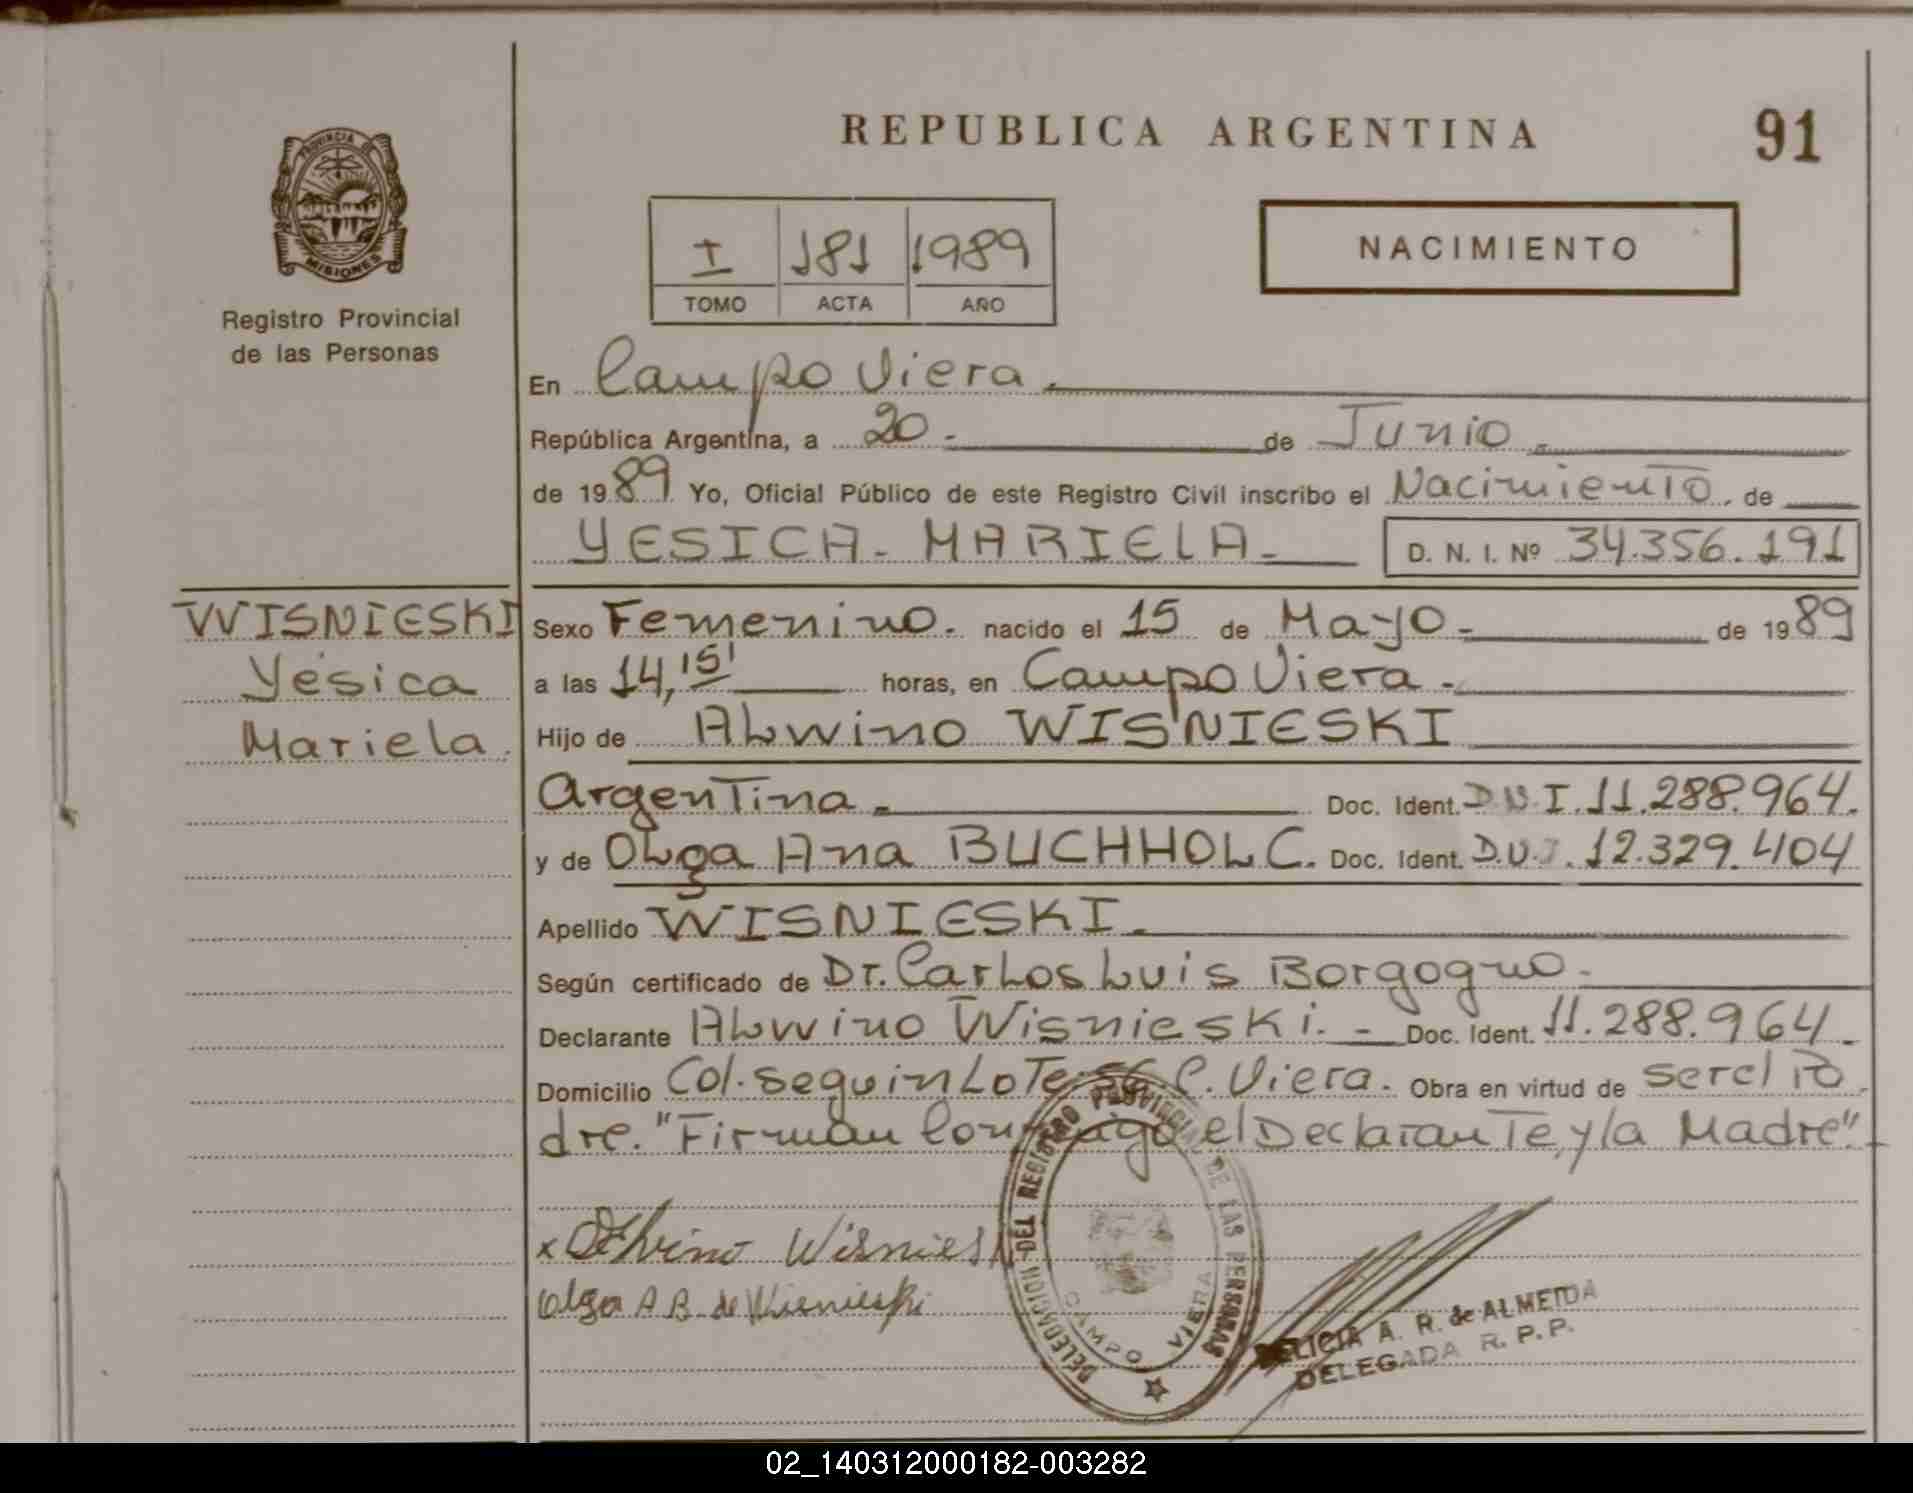 REPUBLICA ARGENTINA
91
PROVINCIA DE
MISIONES
Registro Provincial
de las Personas
I 181 1989
TOMO ACTA AÑO
NACIMIENTO
En Campo Viera.
República Argentina, a 20.- de Junio.
de 1989 Yo, Oficial Público de este Registro Civil inscribo el Nacimiento, de
YESICA. MARIELA.- D. N. I. Nº 34.356.191
WISNIESKI
Yésica
Mariela.
Sexo Femenino. nacido el 15 de Mayo.- de 1989
a las 14,15' horas, en Campo Viera.
Hijo de Alwino WISNIESKI
Argentina.- Doc. Ident. D.N.I. 11.288.964.
y de Olga Ana BUCHHOLC. Doc. Ident. D.N.I. 12.329.404
Apellido WISNIESKI.
Según certificado de Dr. Carlos Luis Borgogno.
Declarante Alwino Wisnieski. - Doc. Ident. 11.288.964.
Domicilio Col. Seguin Lote 56 C. Viera. Obra en virtud de ser el Pa
dre. "Firman Conmigo el Declarante, y la Madre".
x Alvino Wisnies
Olga A B de Wisnieski
DELEGACION DEL REGISTRO PROVINCIAL DE LAS PERSONAS
CAMPO VIERA
DELICIA A. R. de ALMEIDA
DELEGADA R. P. P.
02_140312000182-003282